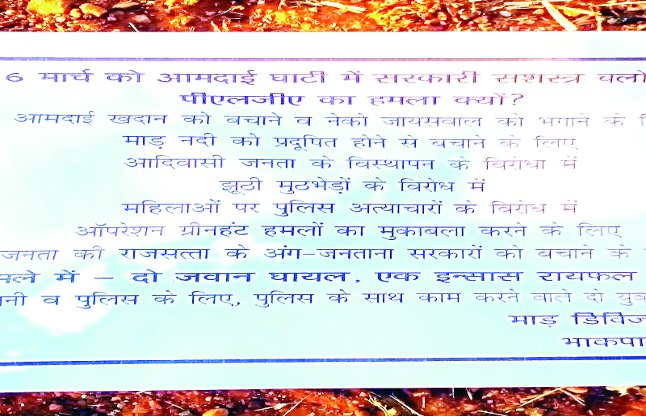 6 मार्च को आमदाई घाटी में सरकारी सशस्त्र बलो
पीएलजीए का हमला क्यों?
आमदाई खदान को बचाने व नेको जायसवाल को भगाने के
माड़ नदी को प्रदूषित होने से बचाने के लिए
आदिवासी जनता के विस्थापन के विरोध में
झूठी मुठभेड़ों के विरोध में
महिलाओं पर पुलिस अत्याचारों के विरोध में
ऑपरेशन ग्रीनहंट हमलों का मुकाबला करने के लिए
जनता की राजसत्ता के अंग–जनताना सरकारों को बचाने के
मले में – दो जवान घायल, एक इन्सास रायफल
नी व पुलिस के लिए, पुलिस के साथ काम करने वाले दो युव
माड़ डिविज
भाकपा